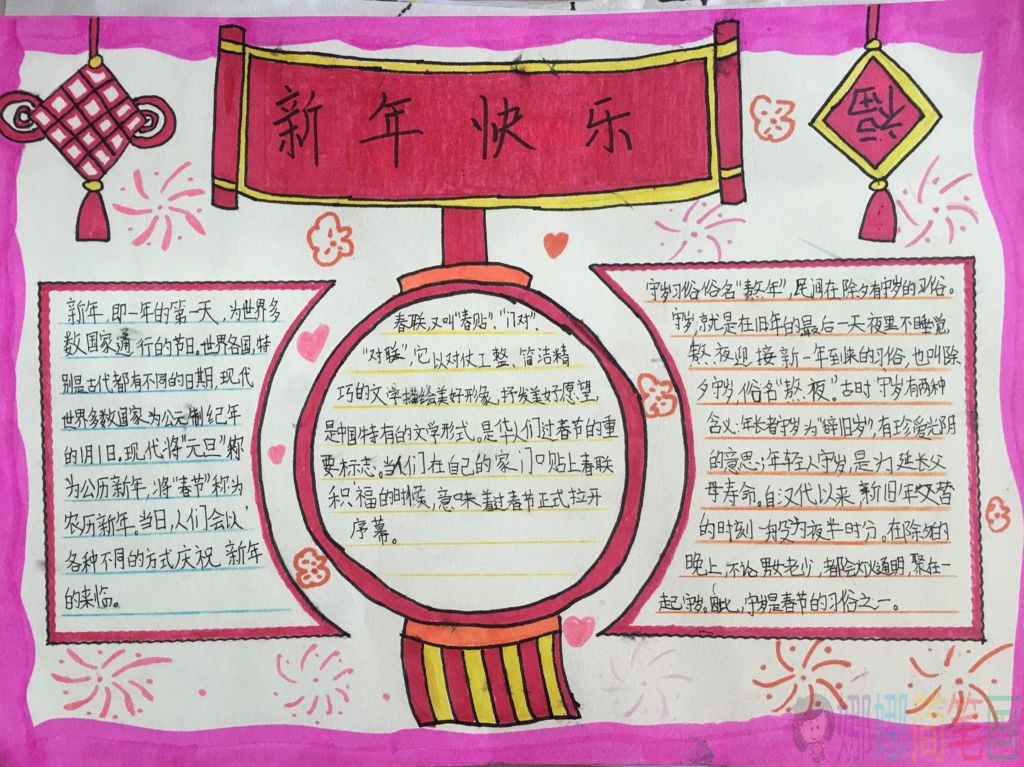 新年快乐
福
新年,即一年的第一天,为世界多
数国家通行的节日。世界各国,特
别是古代都有不同的日期,现代
世界多数国家为公元制纪年
的1月1日。现代将“元旦”称
为公历新年,将“春节”称为
农历新年。当日,人们会以
各种不同的方式庆祝新年
的来临。
春联,又叫“春贴”、“门对”、
“对联”,它以对仗工整、简洁精
巧的文字描绘美好形象,抒发美好愿望,
是中国特有的文学形式。是华人们过春节的重
要标志。当人们在自己的家门口贴上春联
和福的时候,意味着过春节正式拉开
序幕。
守岁习俗俗名“熬年”,民间在除夕有守岁的习俗。
守岁,就是在旧年的最后一天夜里不睡觉,
熬夜迎接新一年到来的习俗,也叫除
夕守岁,俗名“熬夜”。古时守岁有两种
含义:年长者守岁为“辞旧岁”,有珍爱光阴
的意思;年轻人守岁,是为延长父
母寿命。自汉代以来,新旧年交替
的时刻一般为夜半时分。在除夕的
晚上,不论男女老少,都会灯火通明,聚在一
起守岁。因此,守岁是春节的习俗之一。
娜娜简笔画